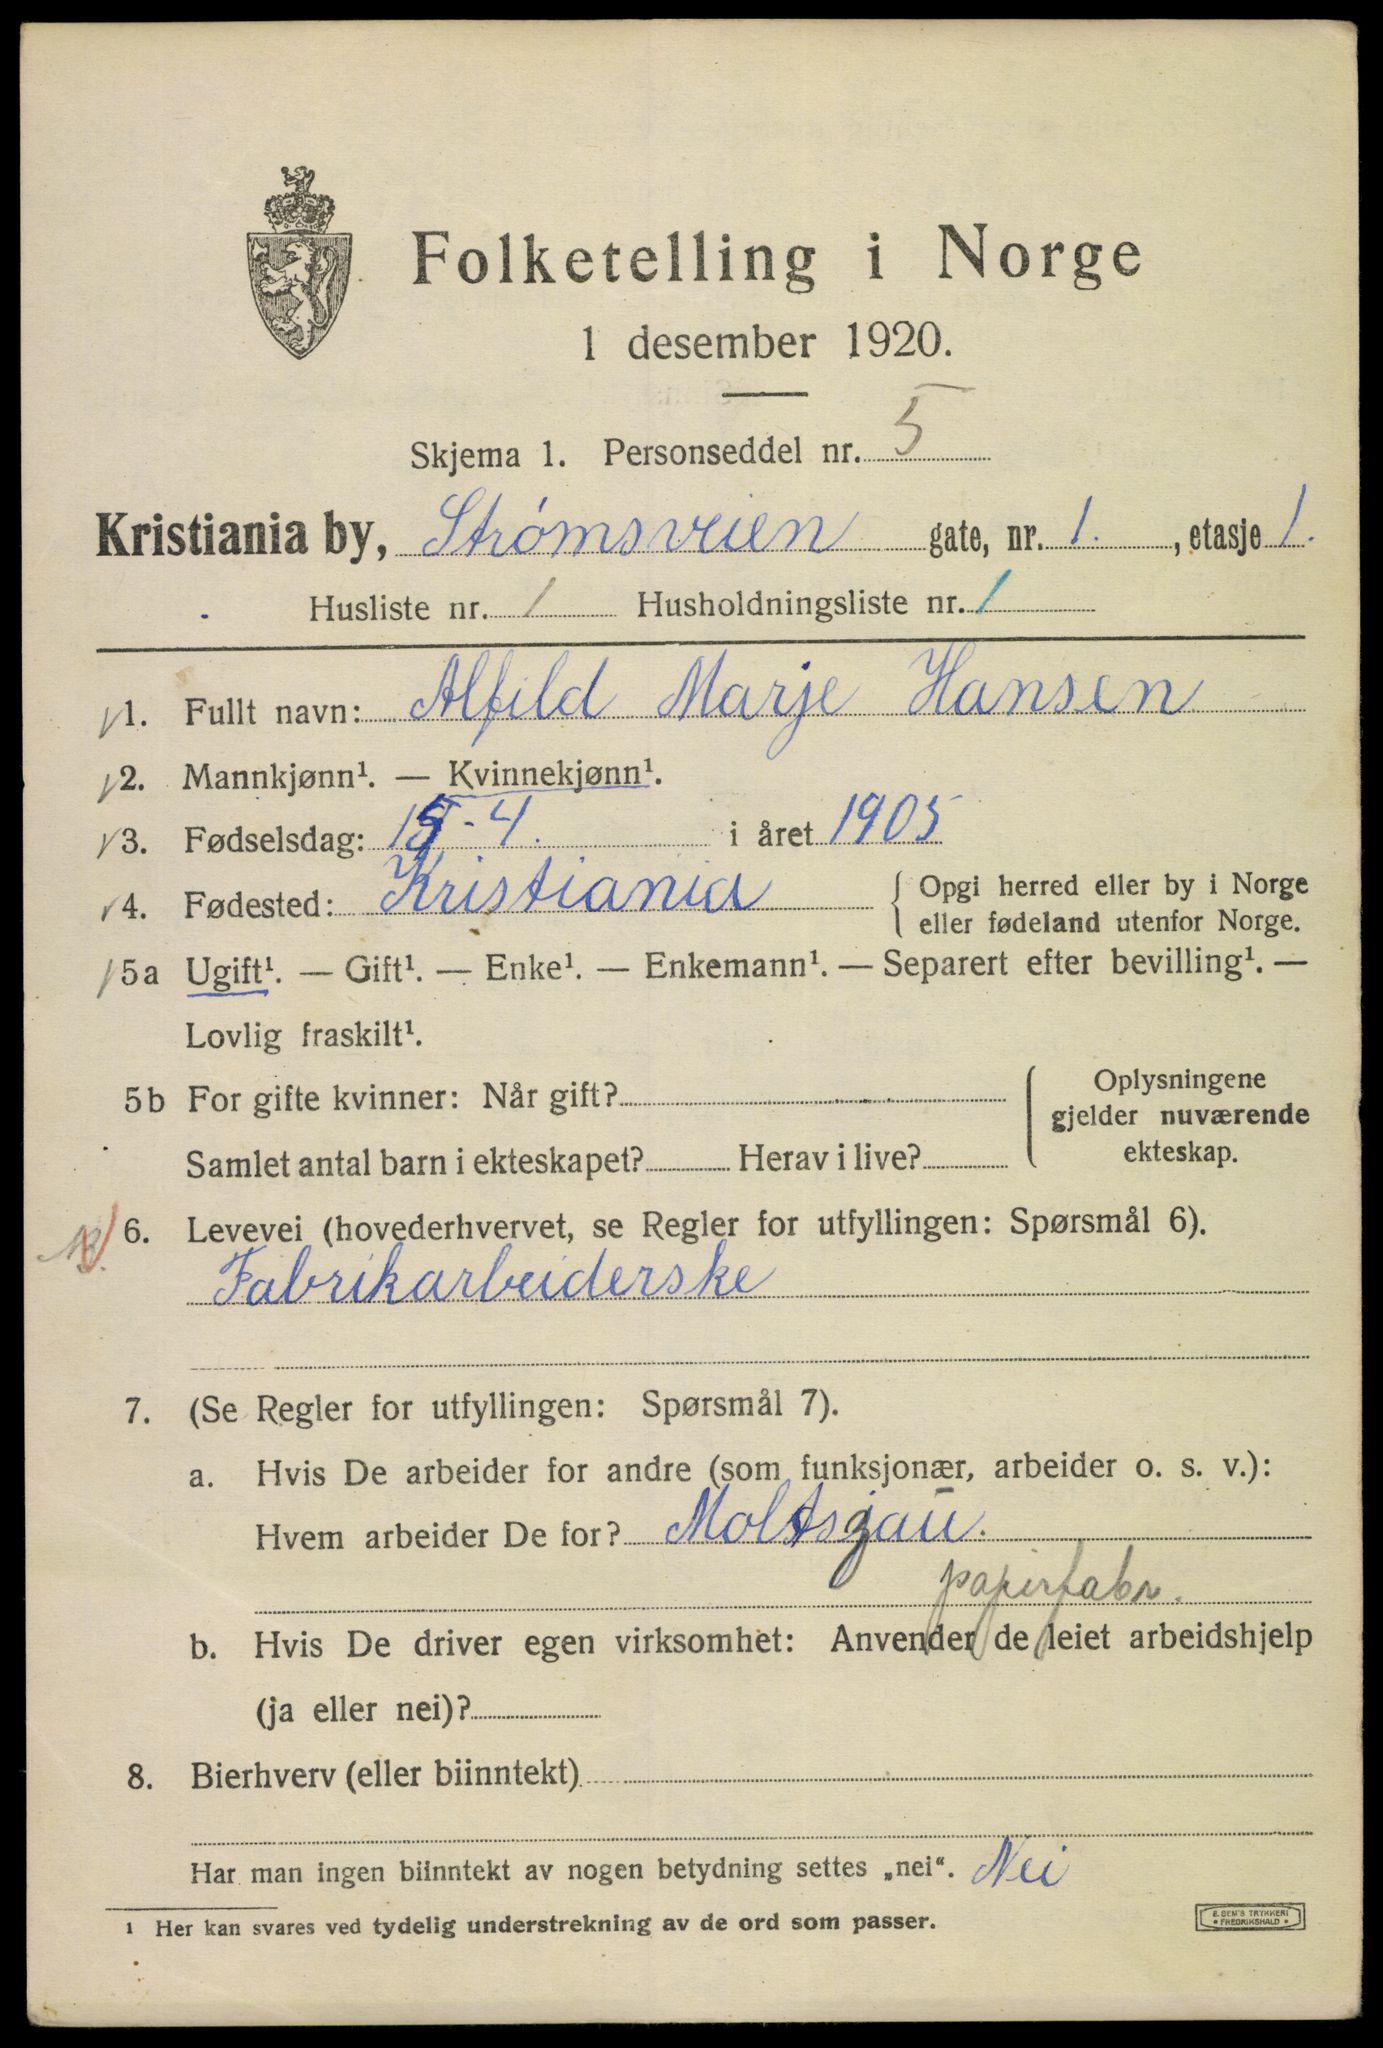 Folketelling i Norge
1 desember 1920.
Skjema 1. Personseddel nr. 5
Kristiania by, Strømsveien gate, nr. 1. , etasje 1.
Husliste nr. 1 Husholdningsliste nr. 1
1. Fullt navn: Alfild Marje Hansen
2. Mannkjønn¹. — Kvinnekjønn¹.
3. Fødselsdag: 15-4. i året 1905
4. Fødested: Kristiania { Opgi herred eller by i Norge
eller fødeland utenfor Norge.
5a Ugift¹. — Gift¹. — Enke¹. — Enkemann¹. — Separert efter bevilling¹. —
Lovlig fraskilt¹.
5b For gifte kvinner: Når gift?
Samlet antal barn i ekteskapet? Herav i live?
Oplysningene
gjelder nuværende
ekteskap.
6. Levevei (hovederhvervet, se Regler for utfyllingen: Spørsmål 6).
Fabrikarbeiderske
7. (Se Regler for utfyllingen: Spørsmål 7).
a. Hvis De arbeider for andre (som funksjonær, arbeider o. s. v.):
Hvem arbeider De for? Moltsgau.
papirfabr.
b. Hvis De driver egen virksomhet: Anvender de leiet arbeidshjelp
(ja eller nei)?
8. Bierhverv (eller biinntekt)
Har man ingen biinntekt av nogen betydning settes „nei“. Nei
¹ Her kan svares ved tydelig understrekning av de ord som passer.
E. SEM'S TRYKKERI
• FREDRIKSHALD •